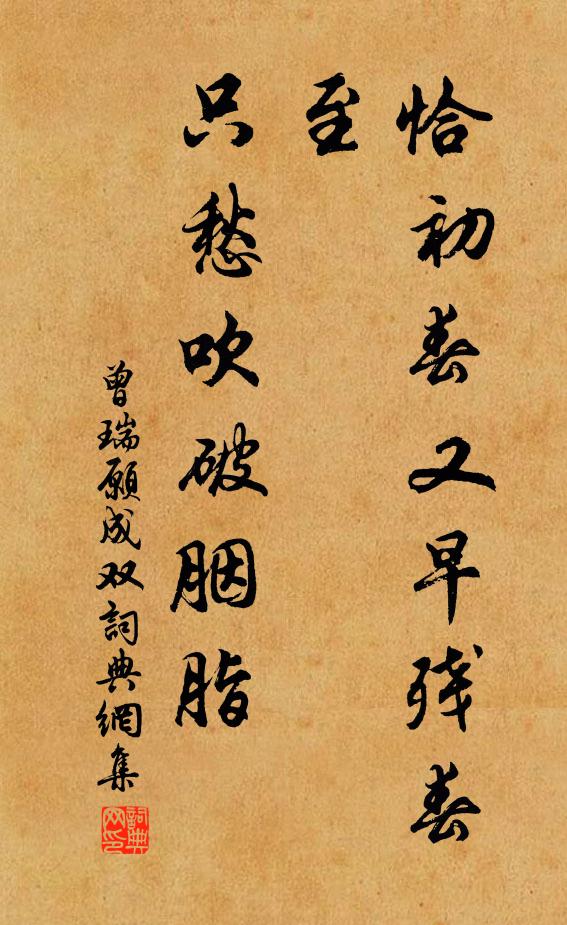 恰初春又早残春
至
只愁吹破胭脂
曾瑞願成双詞典網集
詞典网印